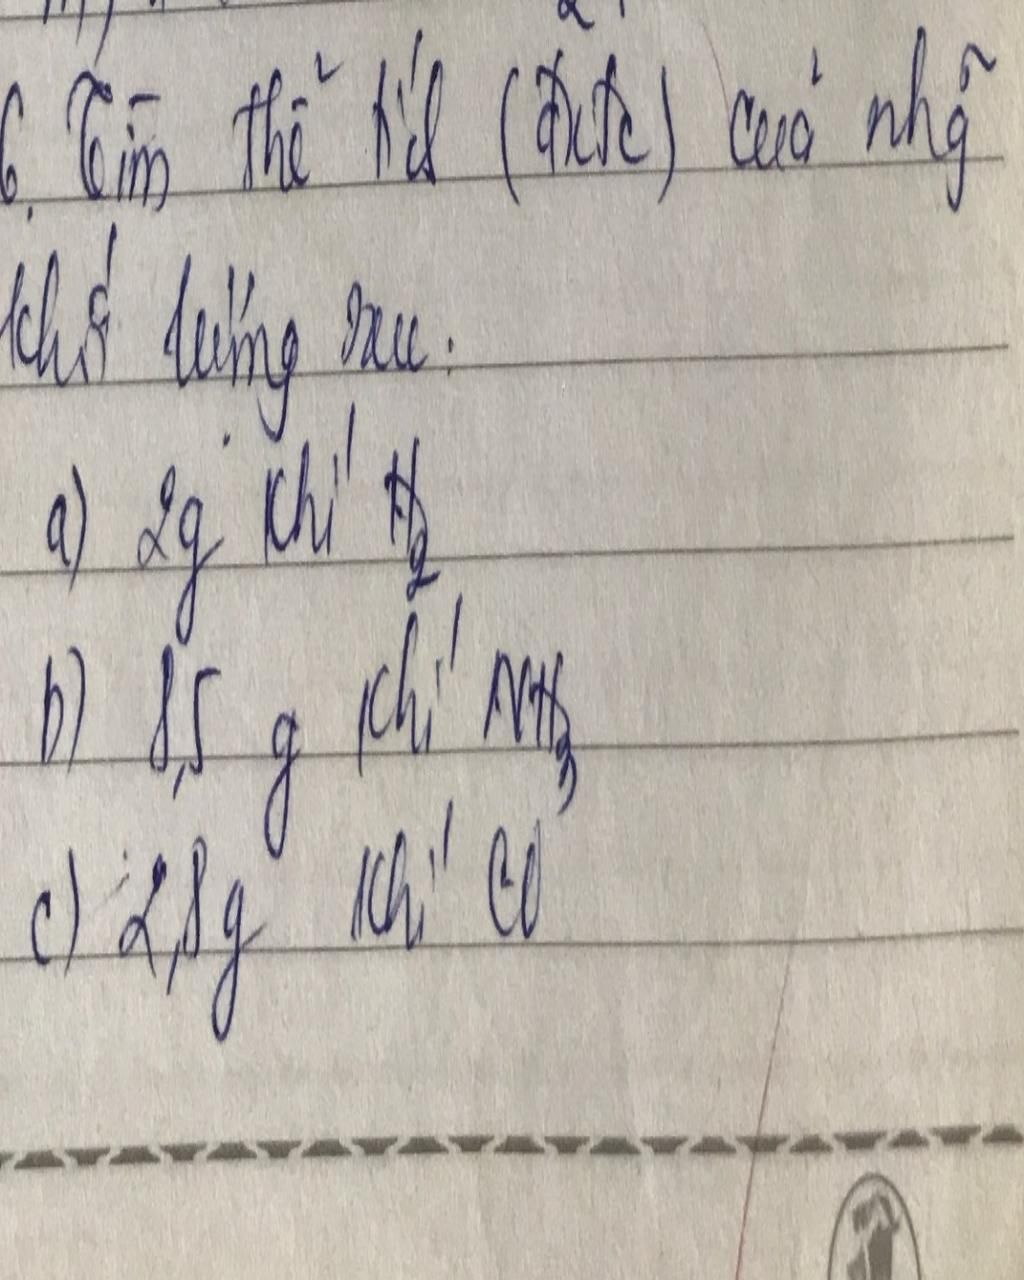 6. Tìm thể tích (đktc) của nhữ
khối lượng sau:
a) 2g khí H₂
b) 8,5 g khí NH₃
c) 2,8g khí CO